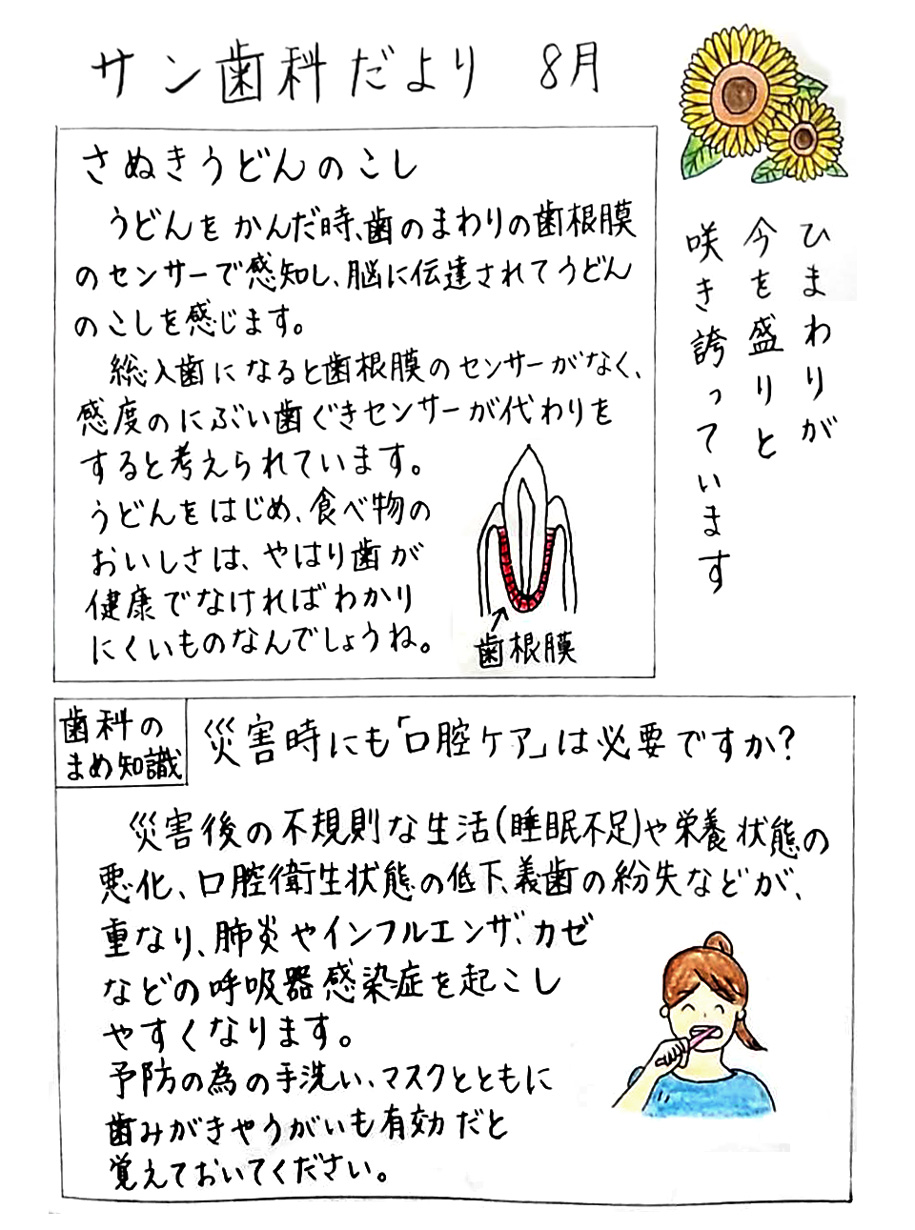 サン歯科だより 8月
ひまわりが
今を盛りと
咲き誇っています
さぬきうどんのこし
うどんをかんだ時、歯のまわりの歯根膜
のセンサーで感知し、脳に伝達されてうどん
のこしを感じます。
総入歯になると歯根膜のセンサーがなく、
感度のにぶい歯ぐきセンサーが代わりを
すると考えられています。
うどんをはじめ、食べ物の
おいしさは、やはり歯が
健康でなければわかり
にくいものなんでしょうね。
歯根膜
歯科の
まめ知識
災害時にも「口腔ケア」は必要ですか?
災害後の不規則な生活(睡眠不足)や栄養状態の
悪化、口腔衛生状態の低下、義歯の紛失などが、
重なり、肺炎やインフルエンザ、カゼ
などの呼吸器感染症を起こし
やすくなります。
予防の為の手洗い、マスクとともに
歯みがきやうがいも有効だと
覚えておいてください。